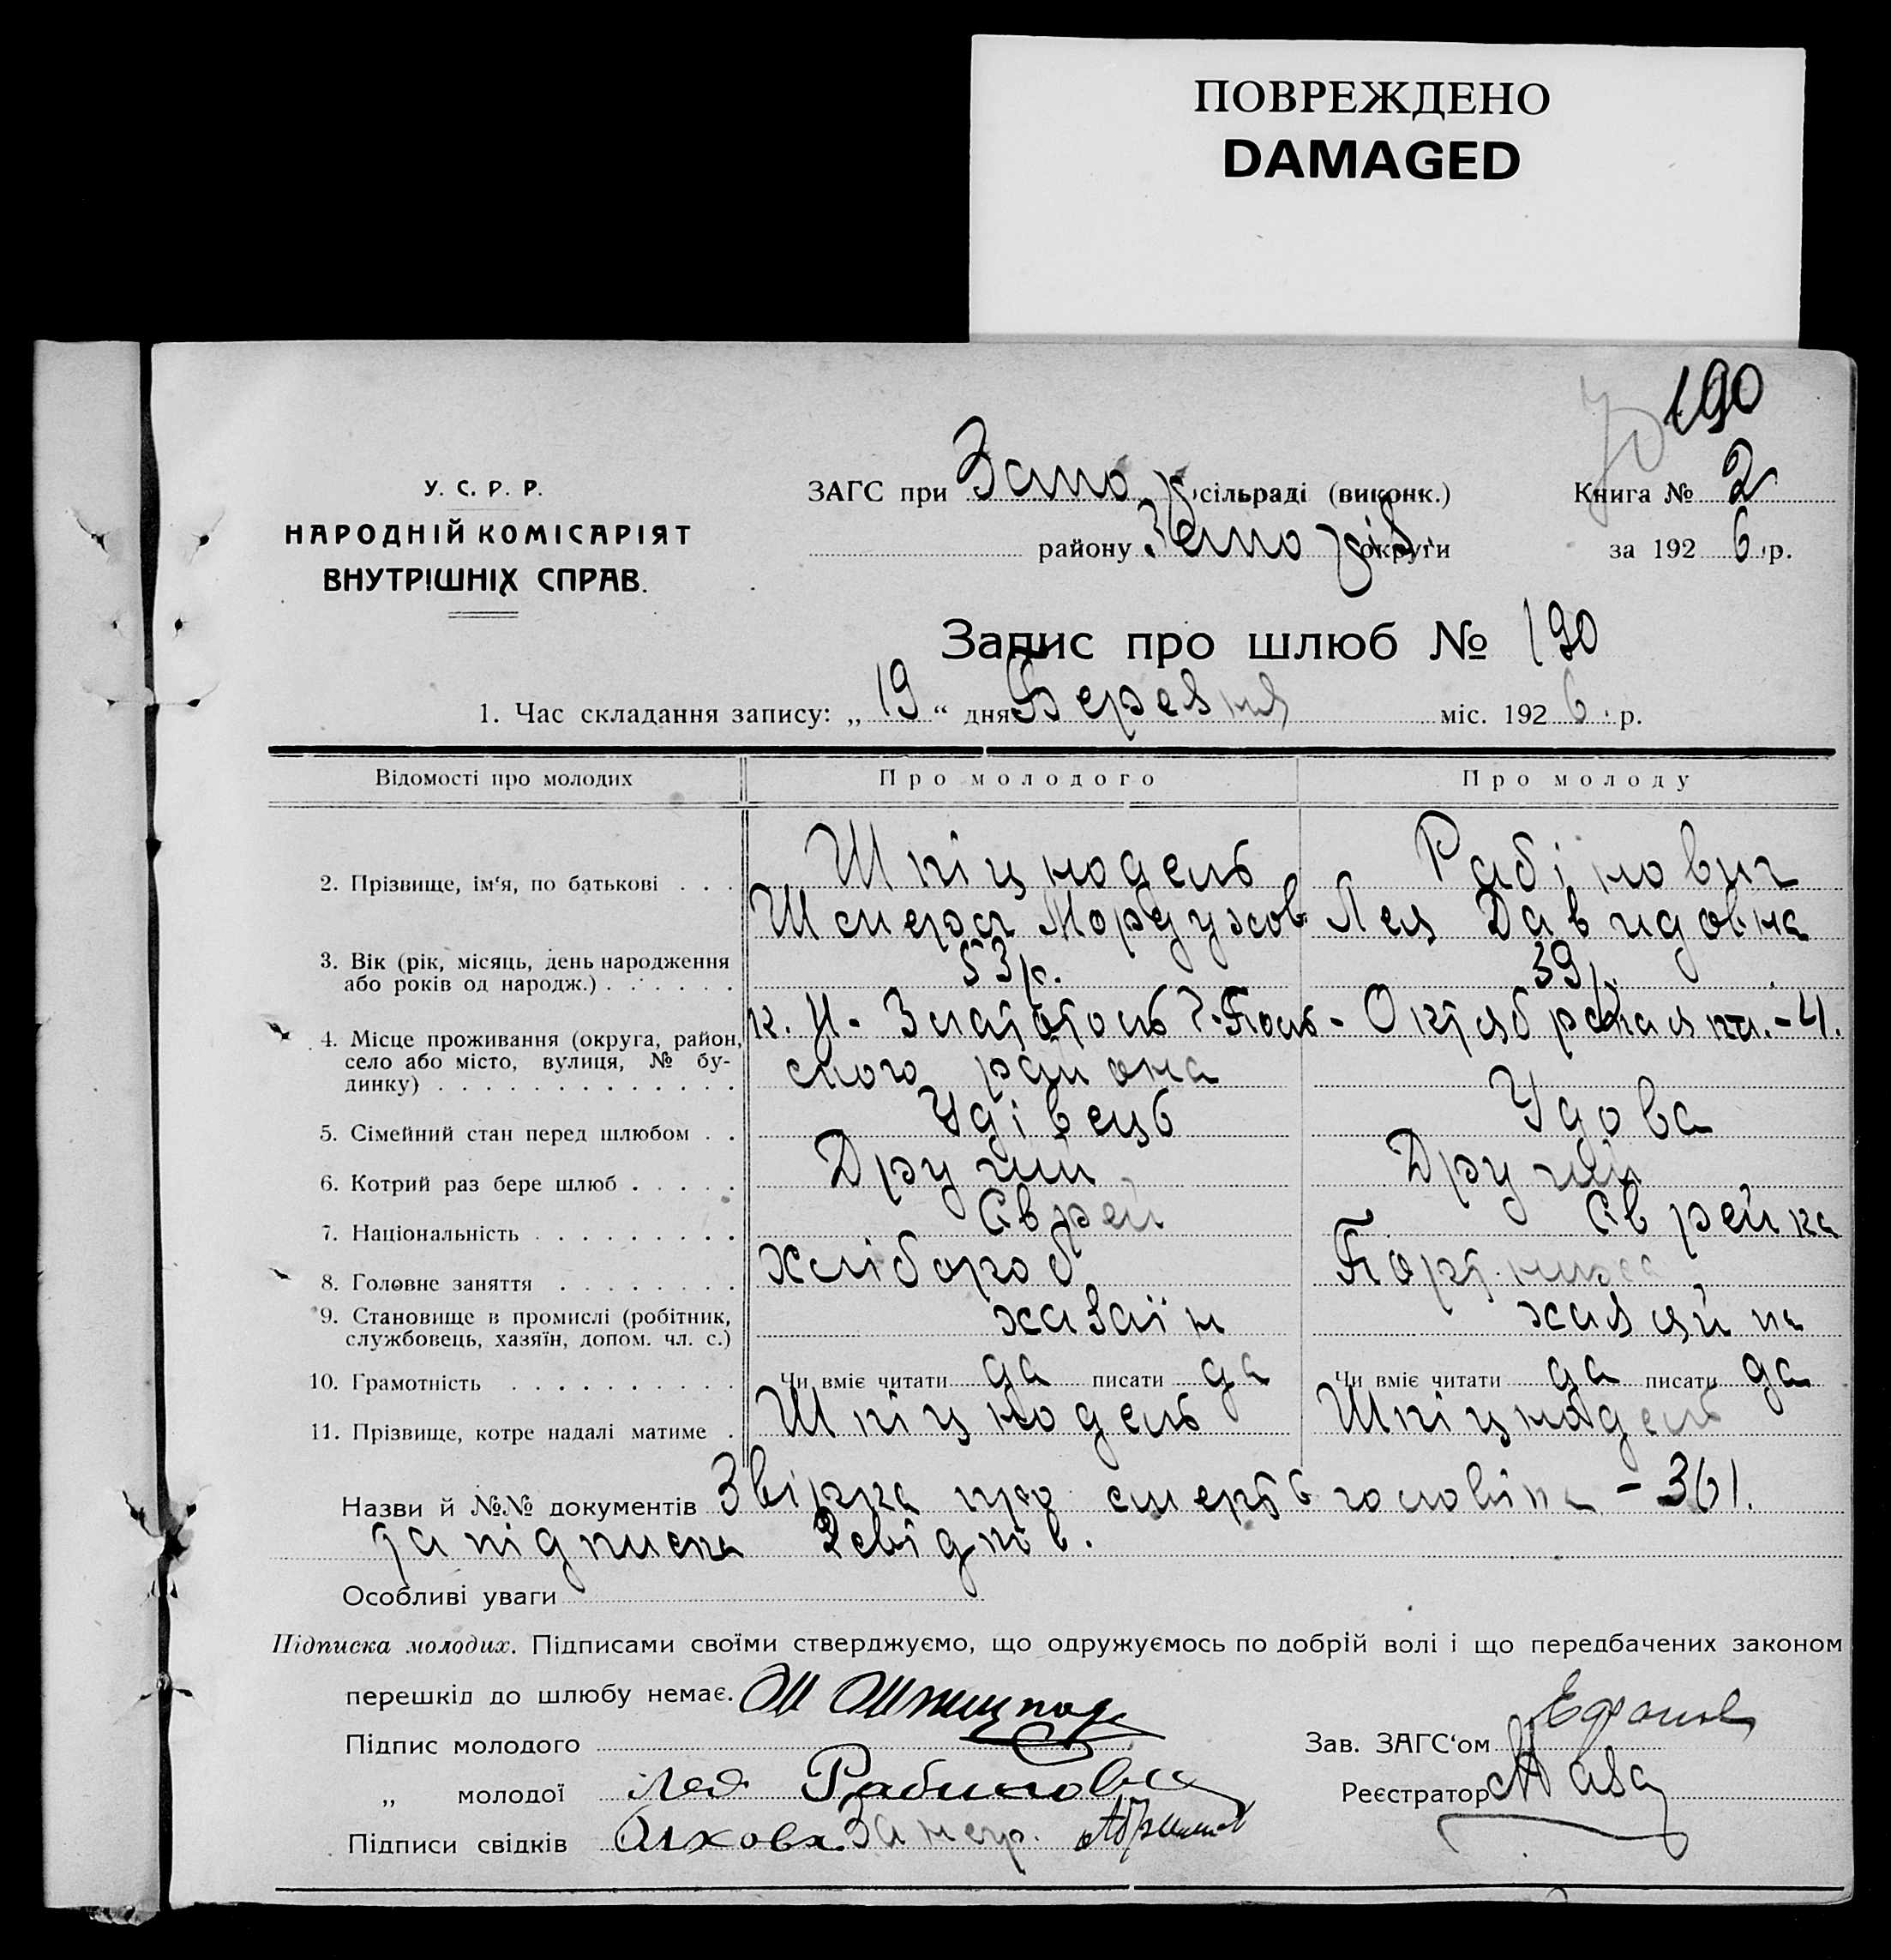 ПОВРЕЖДЕНО
DAMAGED
190
У. С. Р. Р.
НАРОДНІЙ КОМІСАРІЯТ
ВНУТРІШНІХ СПРАВ.
ЗАГС при Запо сільраді (виконк.)
району округи
Книга № 2
за 1926 р.
Запис про шлюб № 190
1. Час складання запису: „19“ дня Березня міс. 1926 р.
Відомості про молодих Про молодого Про молоду
2. Прізвище, ім‘я, по батькові . . . Шпіцнодель Рабінович
Шмерол Мордухов Лея Давидовна
3. Вік (рік, місяць, день народження або років од народж.) . . . . . . 53 р. 39 р.
4. Місце проживання (округа, район, село або місто, вулиця, № будинку) . . . . . . . . . . . . . к. Н-Златополь Октябрская пл.-4.
ского района
5. Сімейний стан перед шлюбом . . Удівець Удова
6. Котрий раз бере шлюб . . . . . Другий Другий
7. Національність . . . . . . . . . Єврей Єврейка
8. Головне заняття . . . . . . . . Хлібороб
9. Становище в промислі (робітник, службовець, хазяїн, допом. чл. с.) хазаїн хазяйка
10. Грамотність . . . . . . . . . . Чи вміє читати да писати да Чи вміє читати да писати да
11. Прізвище, котре надалі матиме . Шпіцнодель Шпіцнодель
Назви й №№ документів про смерть чоловіка - 361.
та підписка 2 свідків.
Особливі уваги
Підписка молодих. Підписами своїми стверджуємо, що одружуємось по добрій волі і що передбачених законом
перешкід до шлюбу немає.
Підпис молодого
Зав. ЗАГС‘ом
„ молодої Лея Рабинович
Реєстратор
Підписи свідків